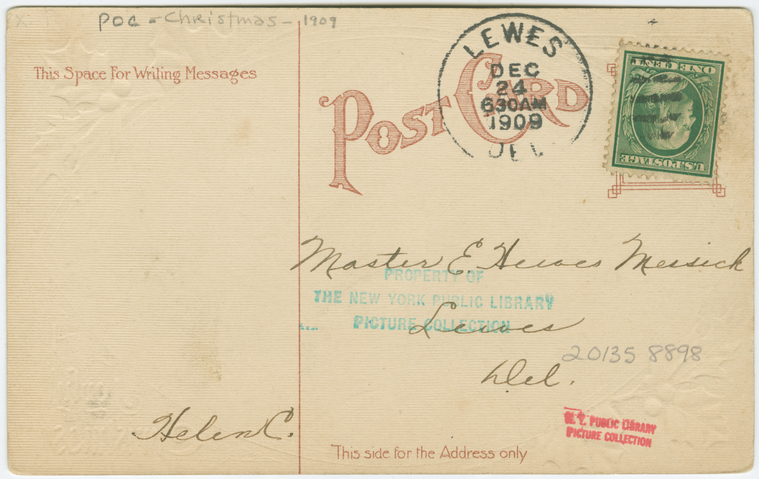 POC - Christmas - 1909
This Space For Writing Messages
POST CARD
LEWES
DEC
24
630AM
1909
DEL
ONE CENT
U.S. POSTAGE
Master E. Hewes Messick
PROPERTY OF
THE NEW YORK PUBLIC LIBRARY
PICTURE COLLECTION
Lewes
20135 8898
Del.
Helen C.
N. Y. PUBLIC LIBRARY
PICTURE COLLECTION
This side for the Address only